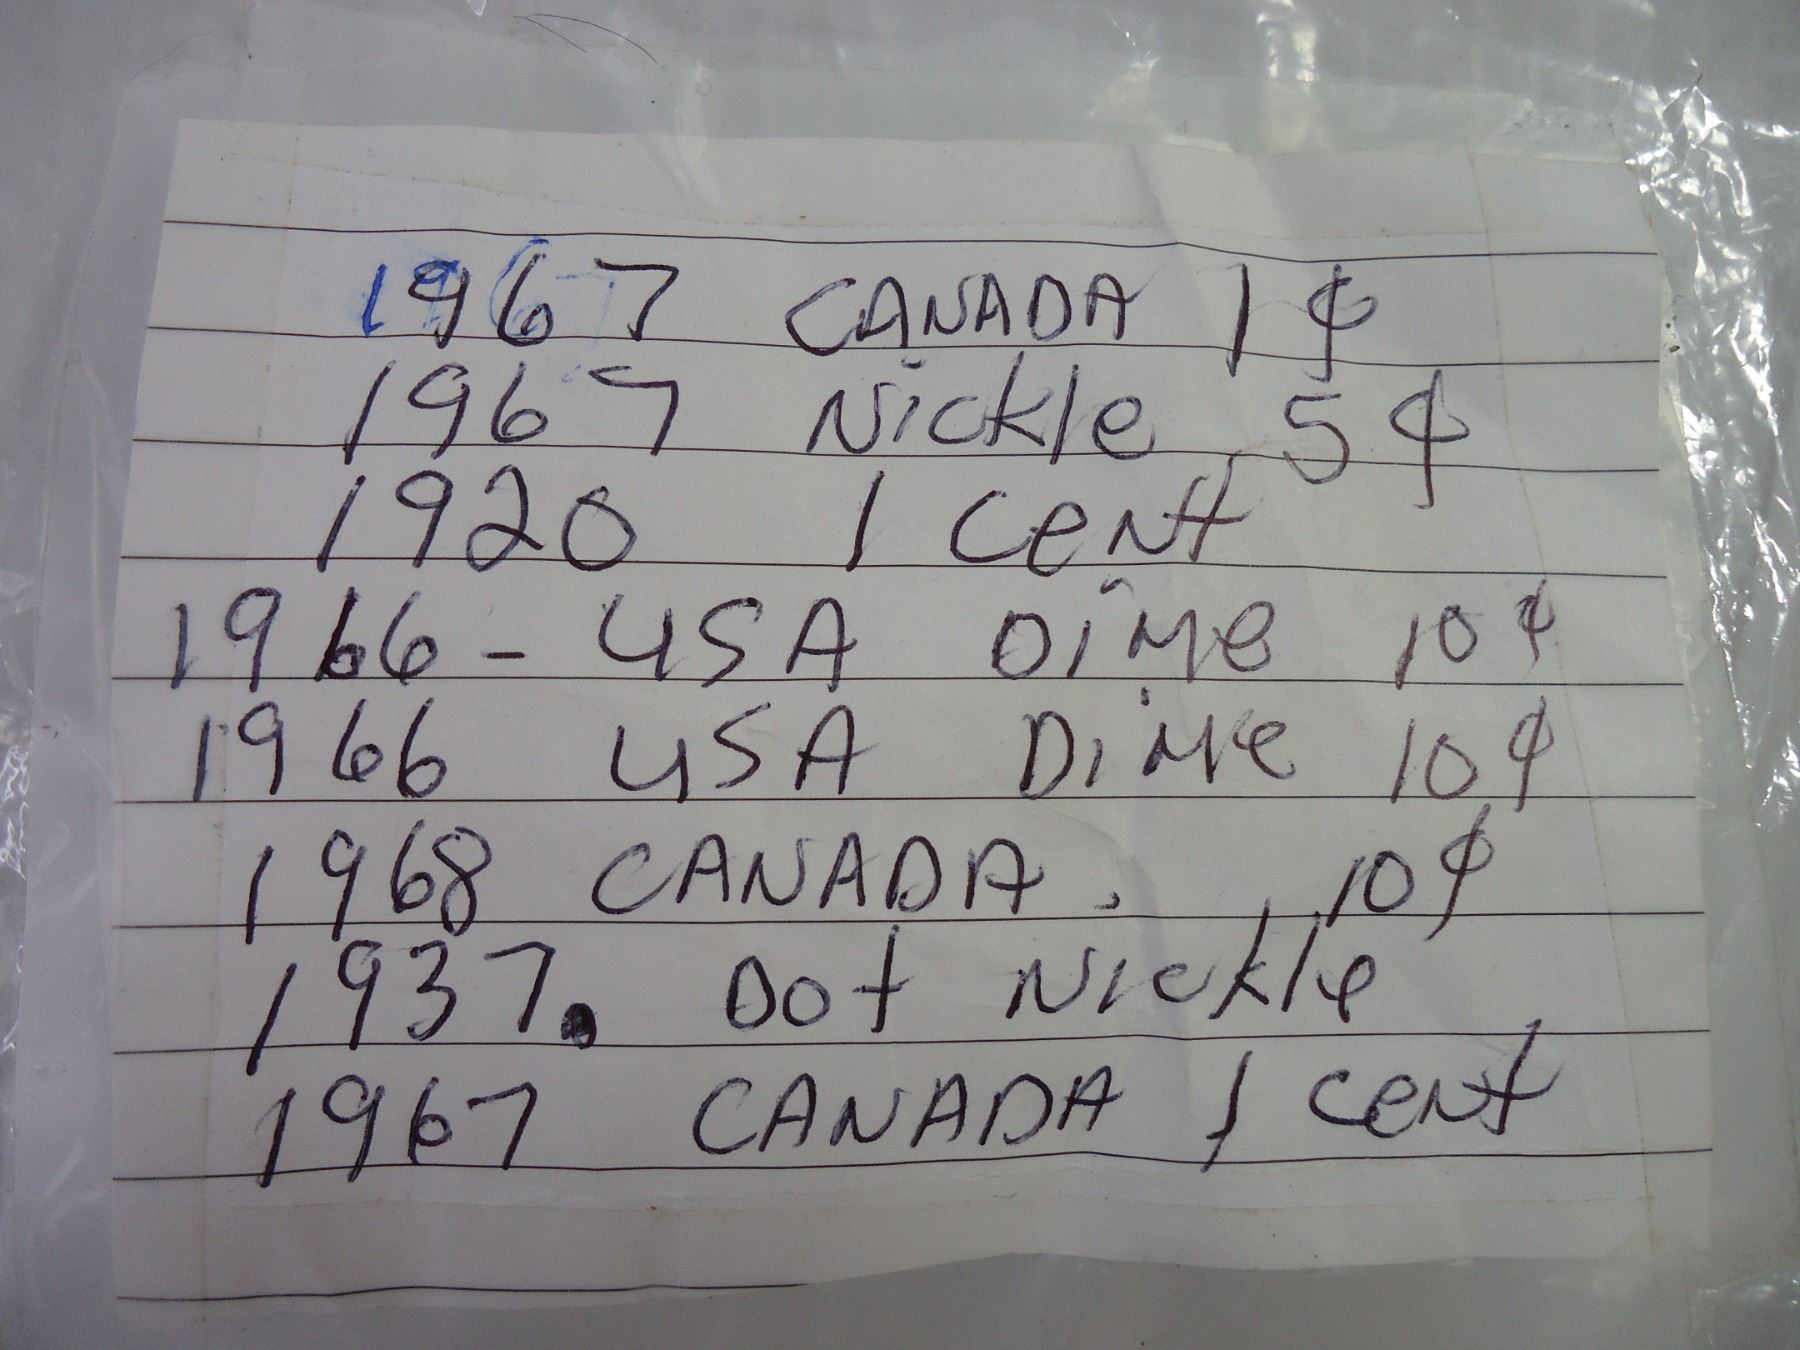 1967 CANADA 1¢
1967 Nickle 5¢
1920 1 cent
1966 - USA Dime 10¢
1966 USA Dime 10¢
1968 CANADA. 10¢
1937. Dot Nickle
1967 CANADA 1 cent